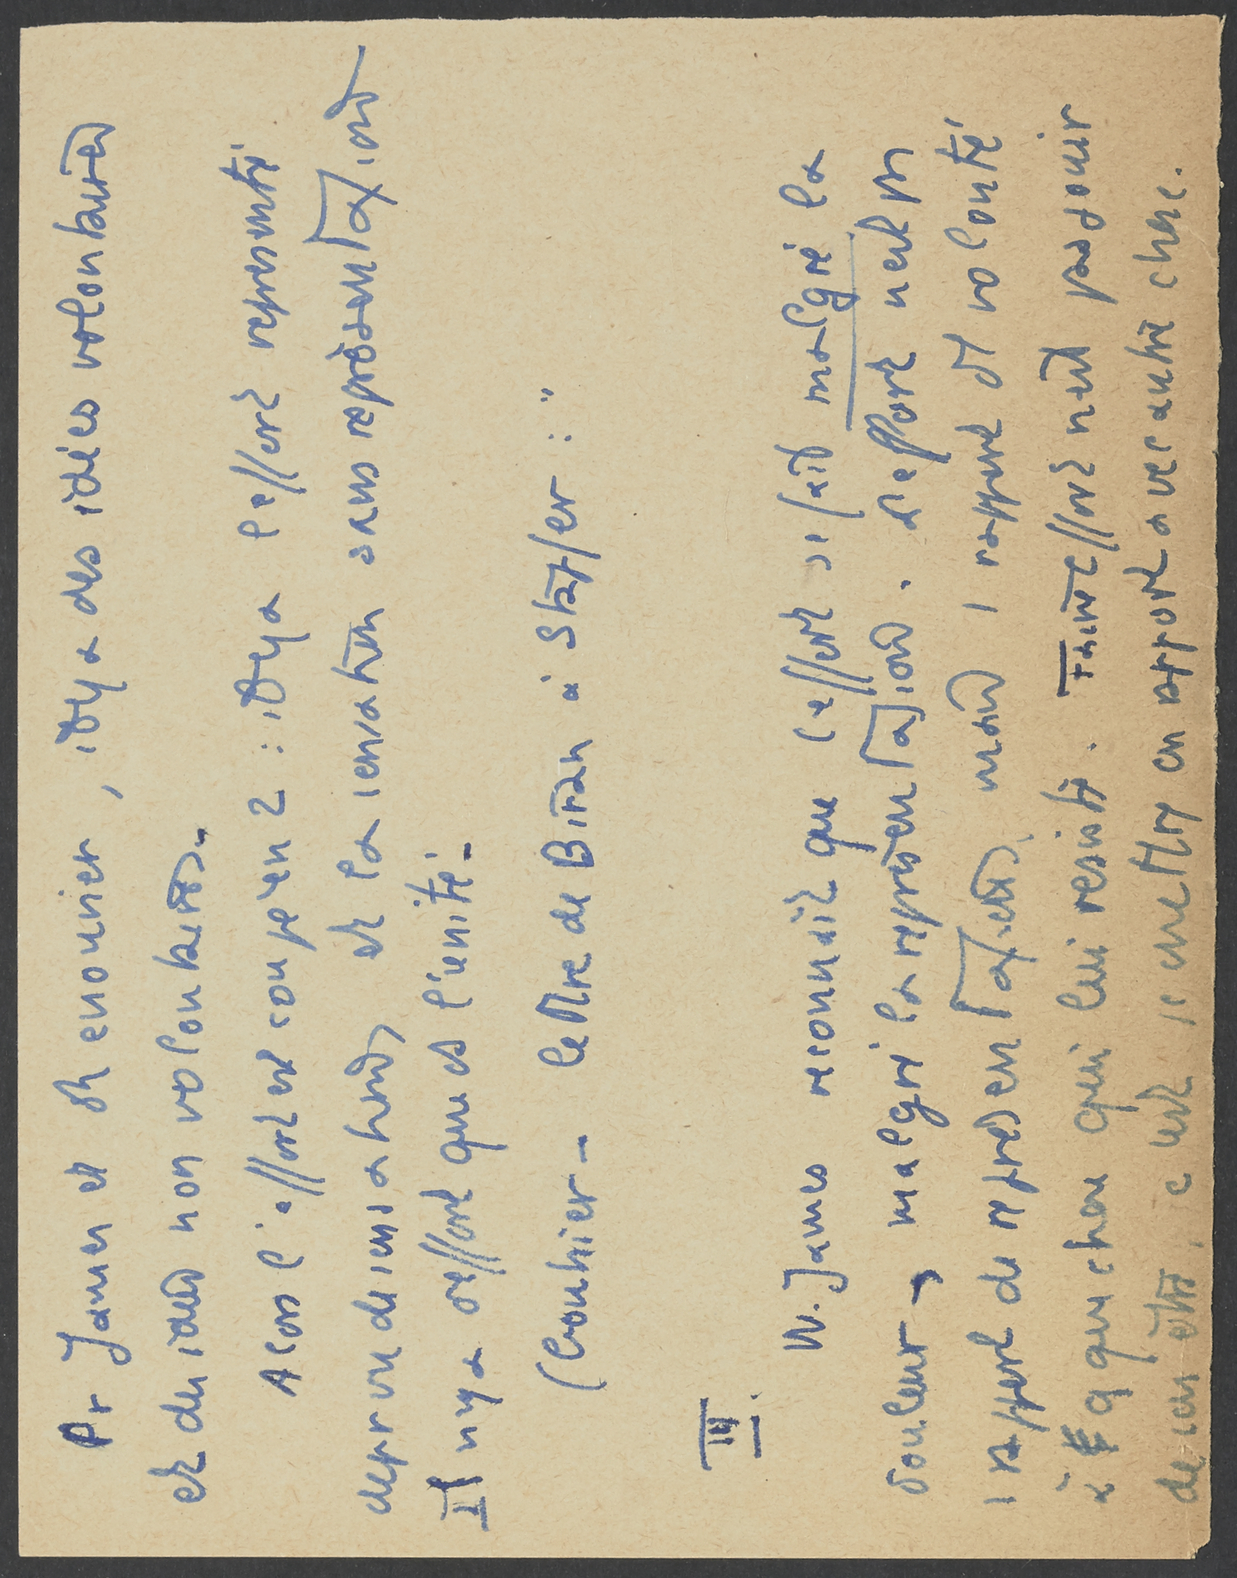 Pr James et Renouvier, il y a des idées volontaires
et des idées non volontaires.
Alors l'effort est coupé en 2 : il y a l'effort représenté
dépourvu de sensation, et la sensation sans représentation
Il n'y a d'effort que ds l'unité.
(Gouhier - lettre de Biran à Stapfer : "
III.
W. James reconnaît que l'effort se fait malgré la
douleur, malgré la représentation. L'effort n'est pas
rapport de représentations, mais rapport de volonté
à qque chose qui lui résiste. Faire effort n'est pas jouir
de son être, c'est se mettre en rapport avec autre chose.